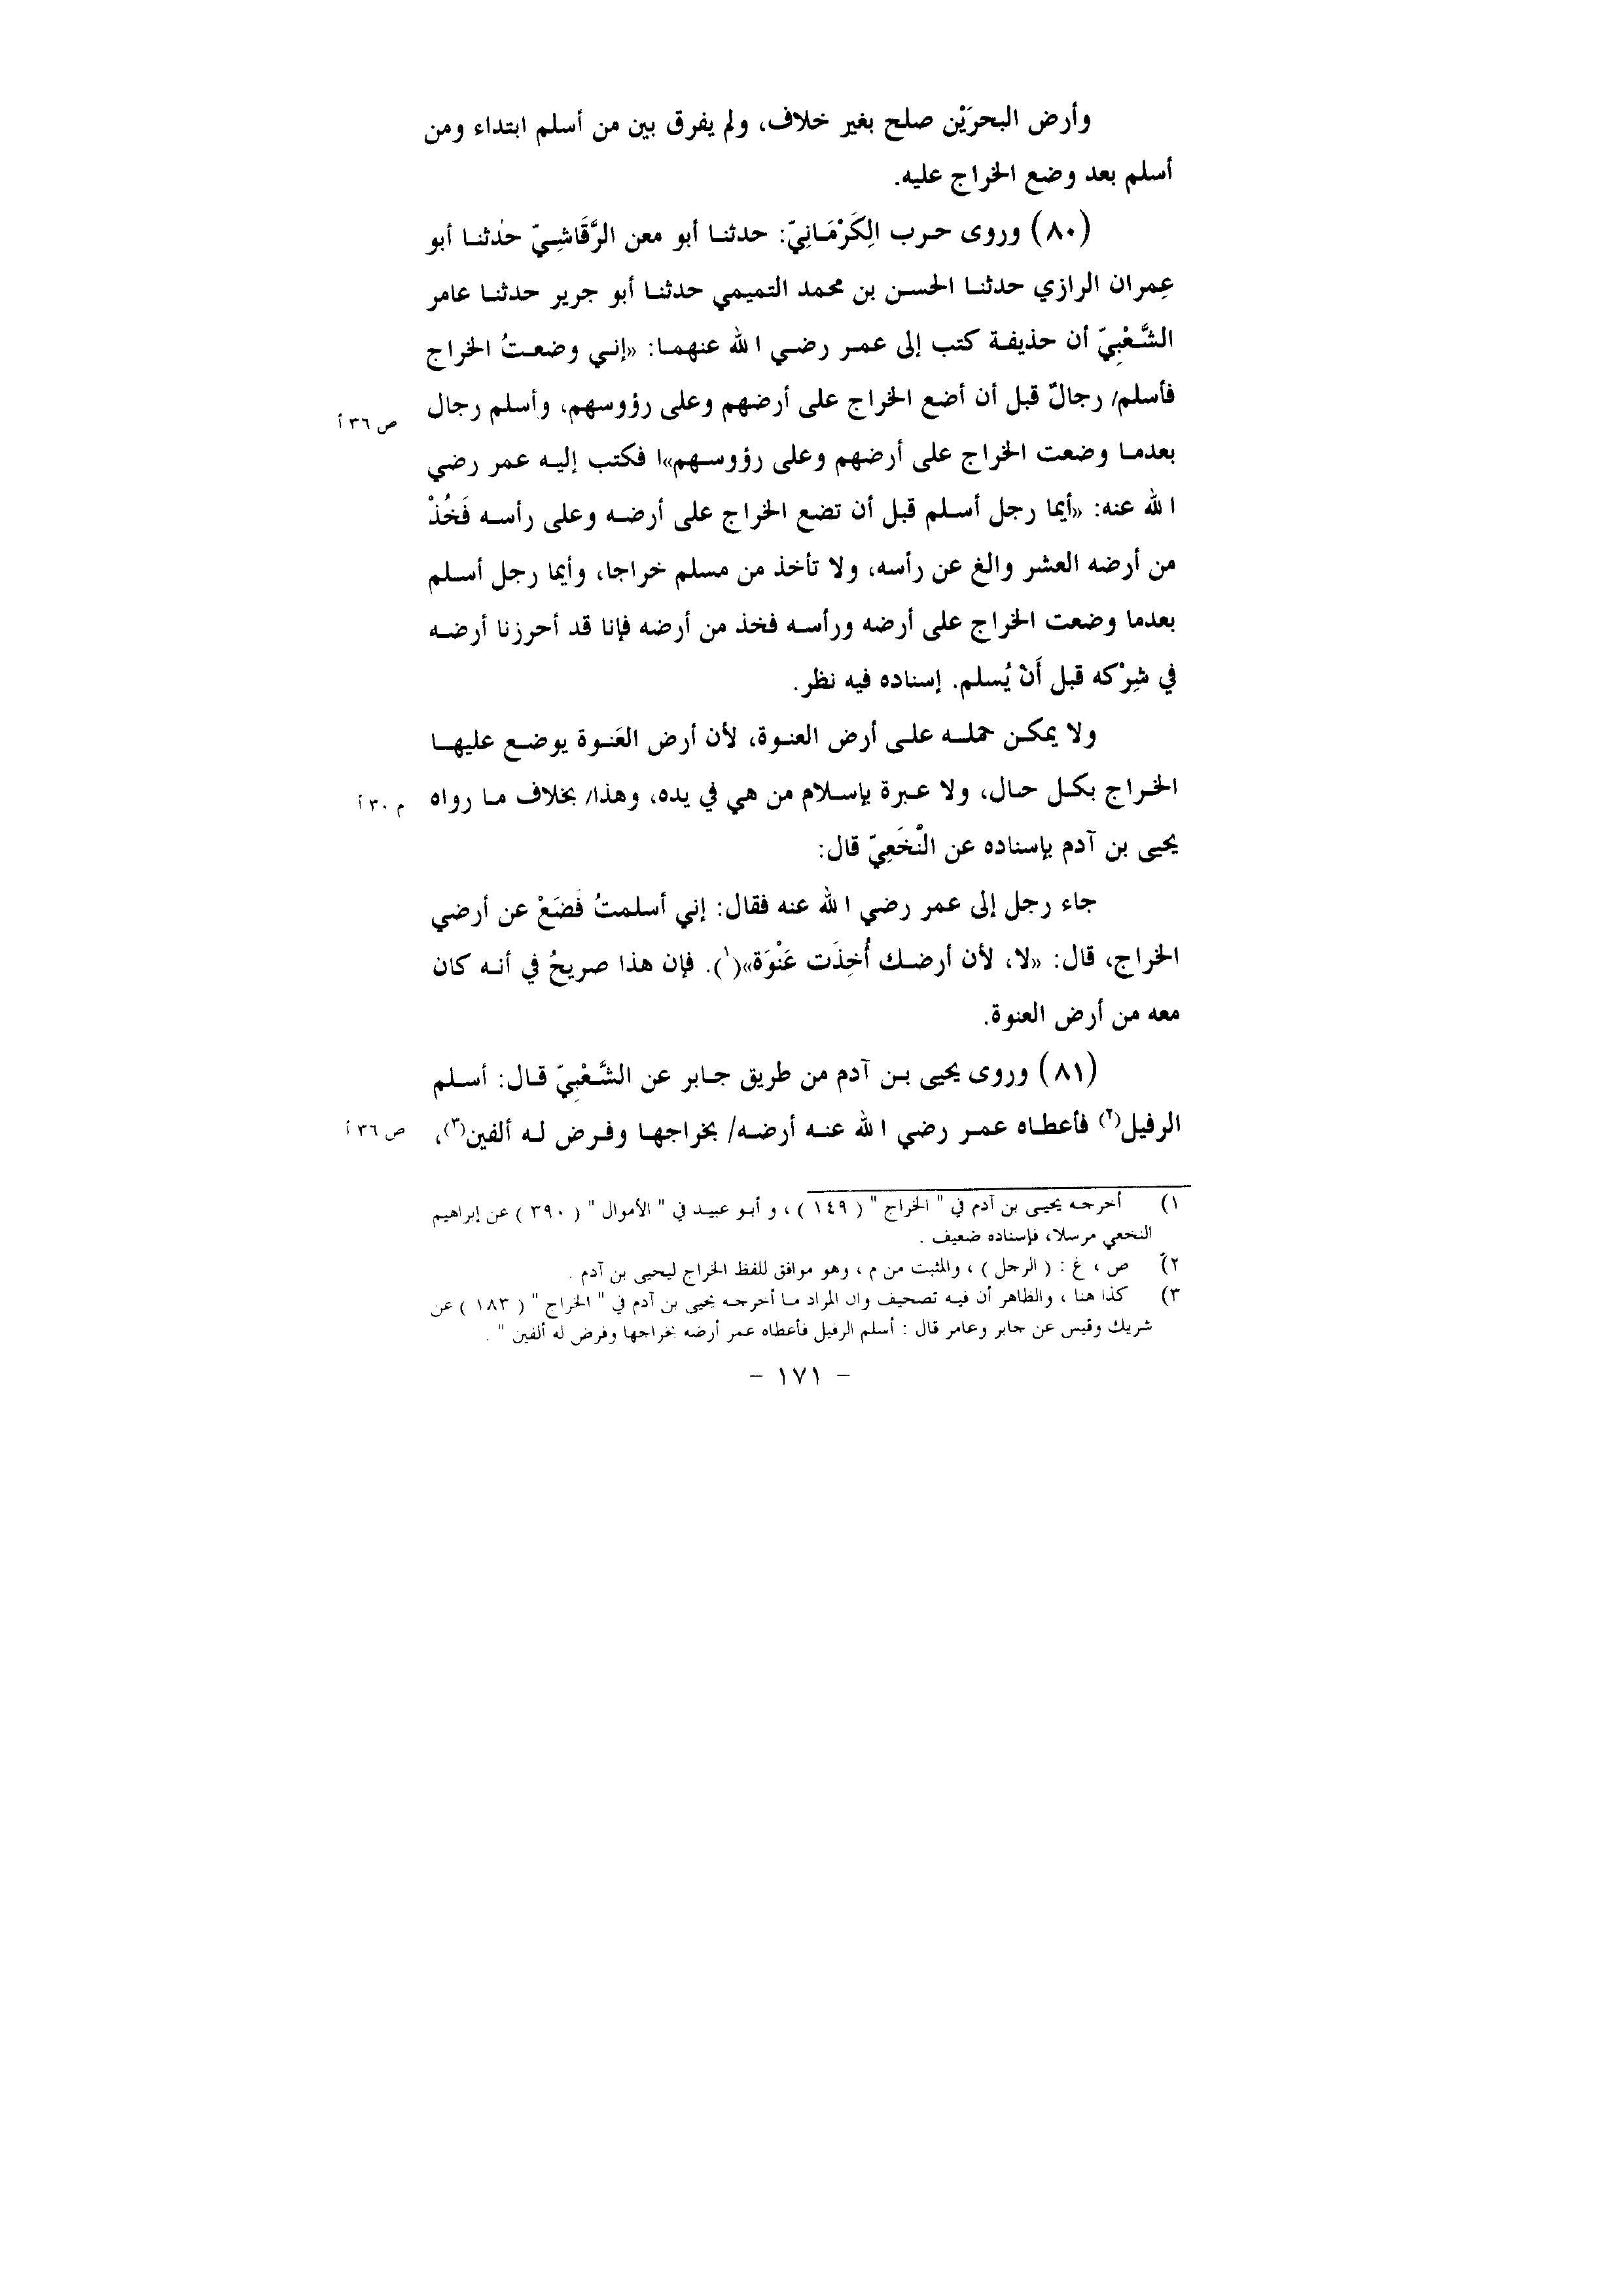 وأرض البحرَيْن صلح بغير خلاف، ولم يفرق بين من أسلم ابتداء ومن
أسلم بعد وضع الخراج عليه.
(٨٠) وروى حرب الكَرْمَانِيّ: حدثنا أبو معن الرَّقَاشِيّ حدثنا أبو
عِمران الرازي حدثنا الحسن بن محمد التميمي حدثنا أبو جرير حدثنا عامر
الشَّعْبِيّ أن حذيفة كتب إلى عمر رضي الله عنهما: «إني وضعتُ الخراج
فأسلم/ رجالٌ قبل أن أضع الخراج على أرضهم وعلى رؤوسهم، وأسلم رجال
ص ٣٦ أ
بعدما وضعت الخراج على أرضهم وعلى رؤوسهم»ا فكتب إليه عمر رضي
الله عنه: «أيما رجل أسلم قبل أن تضع الخراج على أرضه وعلى رأسه فَخُذْ
من أرضه العشر والغ عن رأسه، ولا تأخذ من مسلم خراجا، وأيما رجل أسلم
بعدما وضعت الخراج على أرضه ورأسه فخذ من أرضه فإنا قد أحرزنا أرضه
في شِرْكه قبل أَنْ يُسلم. إسناده فيه نظر.
ولا يمكن حمله على أرض العنوة، لأن أرض العَنوة يوضع عليها
الخراج بكل حال، ولا عبرة بإسلام من هي في يده، وهذا/ بخلاف ما رواه
م ٣٠ أ
يحيى بن آدم بإسناده عن النْخَعِيّ قال:
جاء رجل إلى عمر رضي الله عنه فقال: إني أسلمتُ فَضَعْ عن أرضي
الخراج، قال: «لا، لأن أرضك أُخِذَت عَنْوَة»(١). فإن هذا صريحُ في أنه كان
معه من أرض العنوة.
(٨١) وروى يحيى بن آدم من طريق جابر عن الشَّعْبِيّ قال: أسلم
الرفيل(٢) فأعطاه عمر رضي الله عنه أرضه/ بخراجها وفرض له ألفين(٣)،
ص ٣٦ أ
١) أخرجه يحيى بن آدم في " الخراج " ( ١٤٩ ) ، و أبو عبيد في " الأموال " ( ٣٩٠ ) عن إبراهيم
النخعي مرسلا، فإسناده ضعيف .
٢) ص ، غ : ( الرجل ) ، والمثبت من م ، وهو موافق للفظ الخراج ليحيى بن آدم .
٣) كذا هنا ، والظاهر أن فيه تصحيف وان المراد ما أخرجه يحيى بن آدم في " الخراج " ( ١٨٣ ) عن
شريك وقيس عن جابر وعامر قال : أسلم الرفيل فأعطاه عمر أرضه بخراجها وفرض له ألفين " .
- ١٧١ -